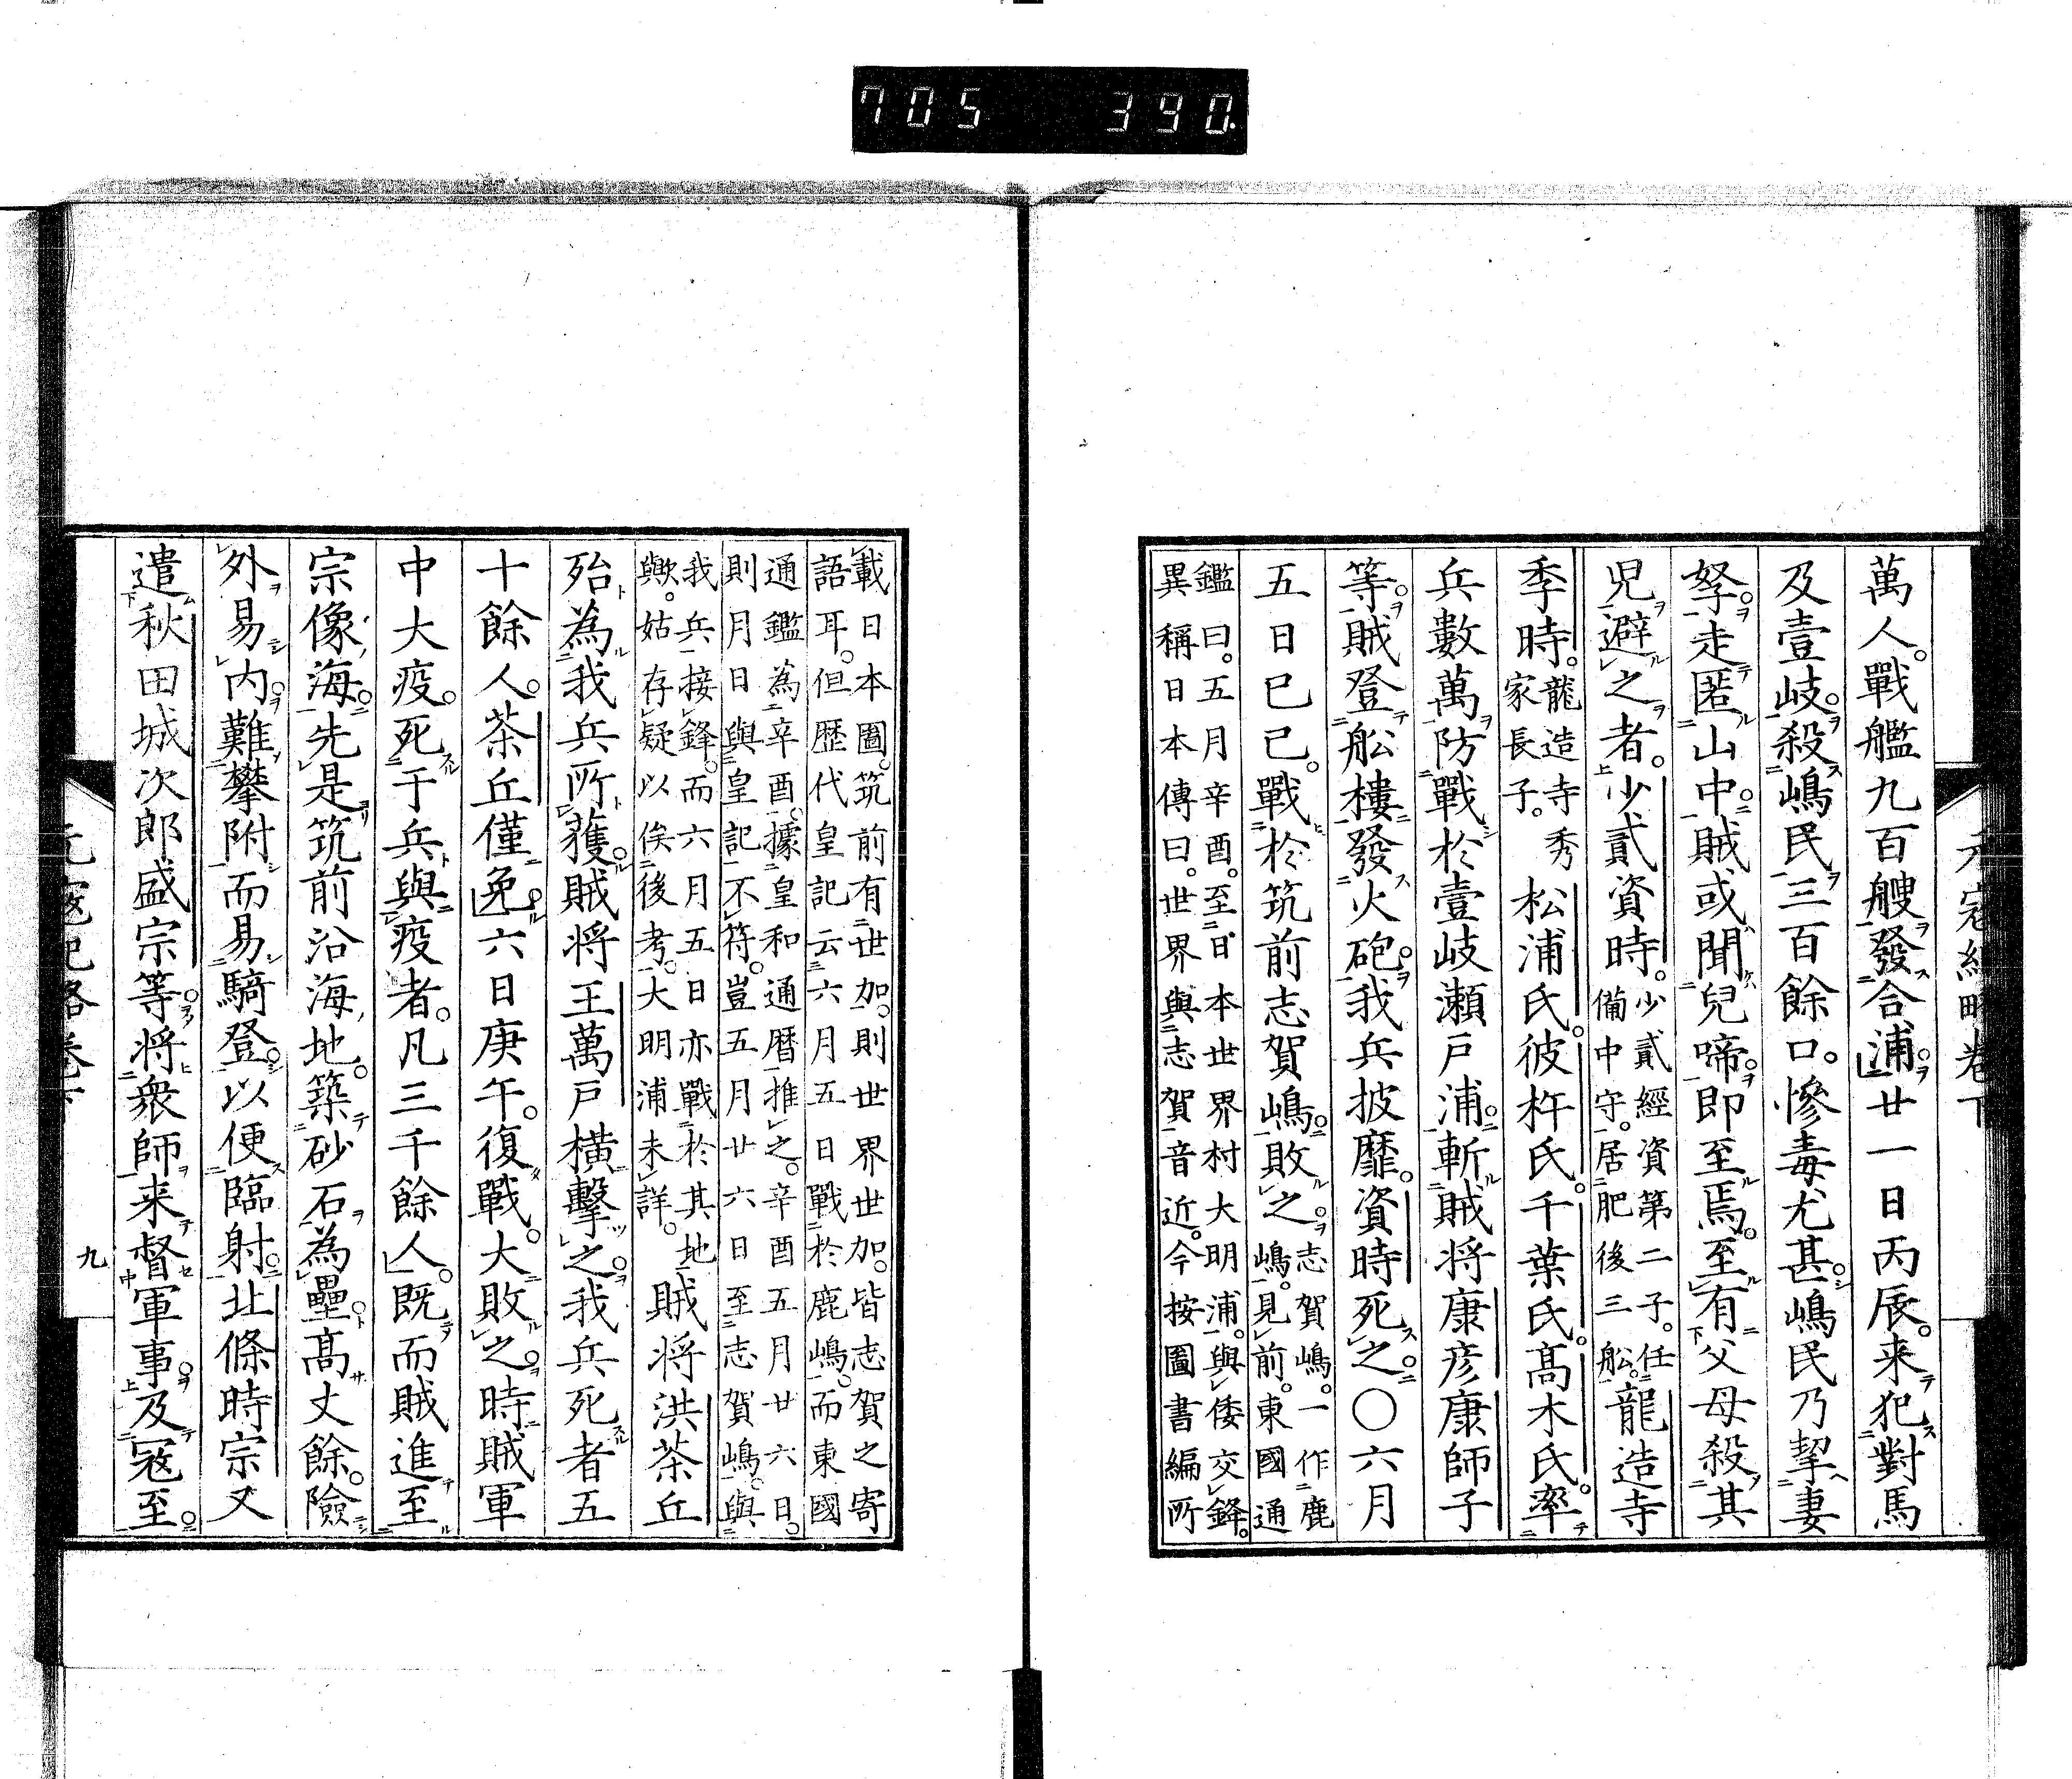 705 390
元寇紀略卷下
萬人。戰艦九百艘發合浦廿一日丙辰。来犯對馬
及壹岐。殺嶋民三百餘口。慘毒尤甚。嶋民乃挈妻
孥。走匿山中。賊或聞兒啼。即至焉。至有父母殺其
児避之者。少貳資時。少貳經資第二子。任備中守。居肥後三舩。龍造寺
季時。龍造寺秀家長子。松浦氏。彼杵氏。千葉氏。髙木氏。率
兵數萬防戰於壹岐瀬戸浦。斬賊将康彦康師子
等。賊登舩樓發火砲。我兵披靡。資時死之。〇六月
五日己巳。戰於筑前志賀嶋。敗之。志賀嶋。一作鹿嶋。見前。東國通
鑑曰。五月辛酉。至日本世界村大明浦。與倭交鋒。
異稱日本傳曰。世界與志賀音近。今按圖書編所
載日本圖。筑前有世加。則世界世加。皆志賀之寄
語耳。但歴代皇記云六月五日戰於鹿嶋。而東國
通鑑為辛酉。據皇和通暦推之。辛酉五月廿六日。
則月日與皇記不符。豈五月廿六日至志賀嶋。與
我兵接鋒。而六月五日亦戰於其地
歟。姑存疑以俟後考。大明浦未詳。賊将洪茶丘
殆為我兵所獲賊将王萬戸橫擊之我兵死者五
十餘人。茶丘僅免六日庚午。復戰。大敗之。時賊軍
中大疫。死于兵與疫者。凡三千餘人。既而賊進至
宗像海。先是筑前沿海地。築砂石為壘。髙丈餘。險
外易内。難攀附而易騎登。以便臨射。北條時宗又
遣秋田城次郎盛宗等。将衆師来督軍事。及寇至
元寇紀略卷下
九